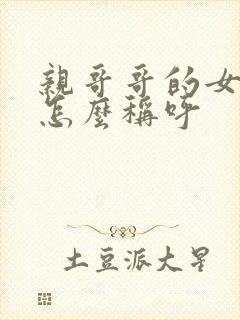 親哥哥的女
怎麼稱呼
土豆派大星